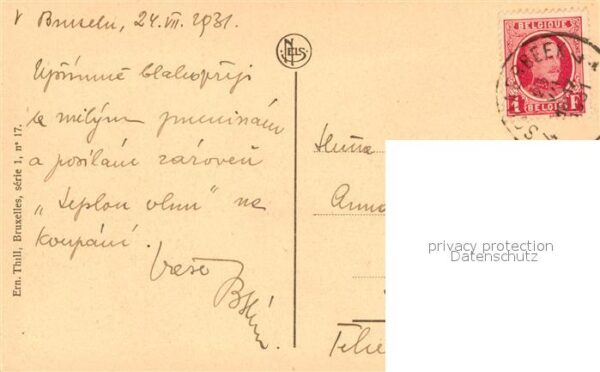 V Bruselu, 24.VII.1931.
Upřímně blahopřeji
k milým jmeninám
a posílám zároveň
„teplou vlnu" na
koupání.
Vaše
NELS
Ern. Thill, Bruxelles, série 1, n° 17.
BELGIQUE
1 F
BELGIË
Slečna
Anna
privacy protection
Datenschutz